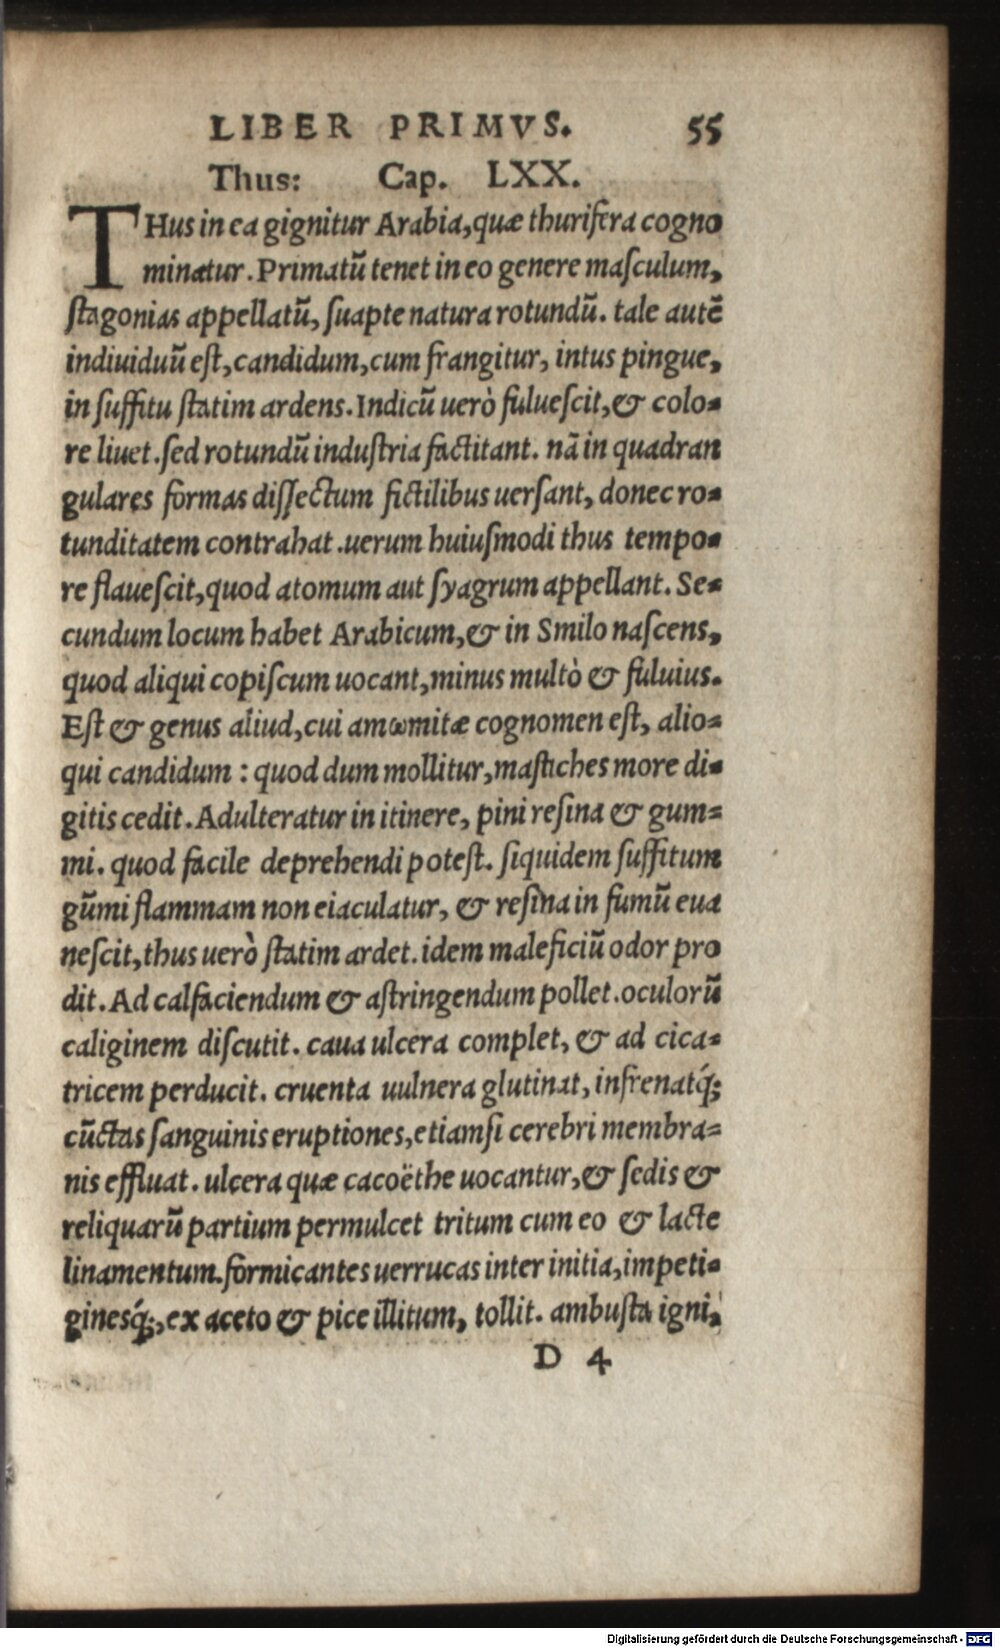 LIBER PRIMVS. 55
Thus: Cap. LXX.
THus in ea gignitur Arabia, quæ thurifera cogno
minatur. Primatũ tenet in eo genere masculum,
stagonias appellatũ, suapte natura rotundũ. tale autẽ
indiuiduũ est, candidum, cum frangitur, intus pingue,
in suffitu statim ardens. Indicũ uerò fuluescit, & colo-
re liuet. sed rotundũ industria factitant. nã in quadran
gulares formas dissectum fictilibus uersant, donec ro-
tunditatem contrahat. uerum huiusmodi thus tempo-
re flauescit, quod atomum aut syagrum appellant. Se-
cundum locum habet Arabicum, & in Smilo nascens,
quod aliqui copiscum uocant, minus multò & fuluius.
Est & genus aliud, cui amωmitæ cognomen est, alio-
qui candidum: quod dum mollitur, mastiches more di-
gitis cedit. Adulteratur in itinere, pini resina & gum-
mi. quod facile deprehendi potest. siquidem suffitum
gũmi flammam non eiaculatur, & resina in fumũ eua
nescit, thus uerò statim ardet. idem maleficiũ odor pro
dit. Ad calfaciendum & astringendum pollet. oculorũ
caliginem discutit. caua ulcera complet, & ad cica-
tricem perducit. cruenta uulnera glutinat, infrenatq́;
cũctas sanguinis eruptiones, etiamsi cerebri membra-
nis effluat. ulcera quæ cacoëthe uocantur, & sedis &
reliquarũ partium permulcet tritum cum eo & lacte
linamentum. formicantes uerrucas inter initia, impeti-
ginesq́;, ex aceto & pice illitum, tollit. ambusta igni,
D 4
Digitalisierung gefördert durch die Deutsche Forschungsgemeinschaft - DFG